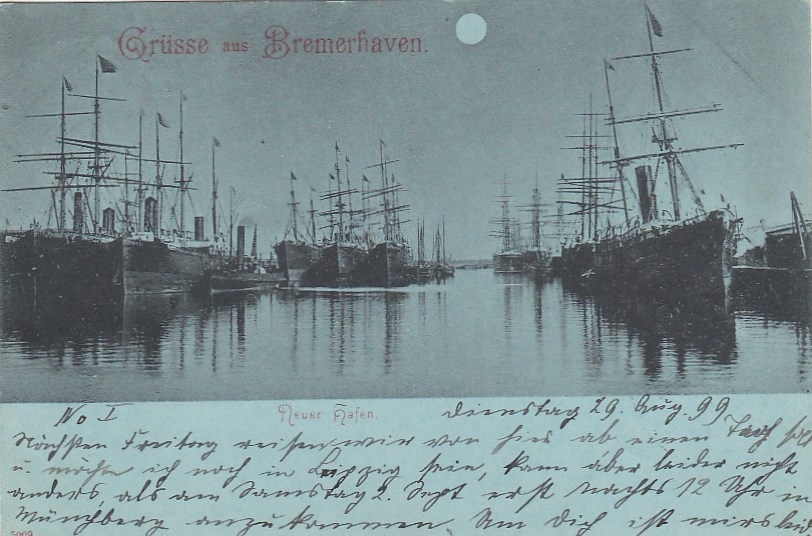 Grüsse aus Bremerhaven.
Neuer Hafen.
No I
Dienstag 29. Aug. 99
Nächsten Freitag reisen wir von hier ab einen Tag soll
u. möchte ich noch in Leipzig sein, kann aber leider nicht
anders, als am Samstag 2. Sept erst Nachts 12 Uhr in
Münchberg anzukommen. Um Dich ist mirs leid
5009